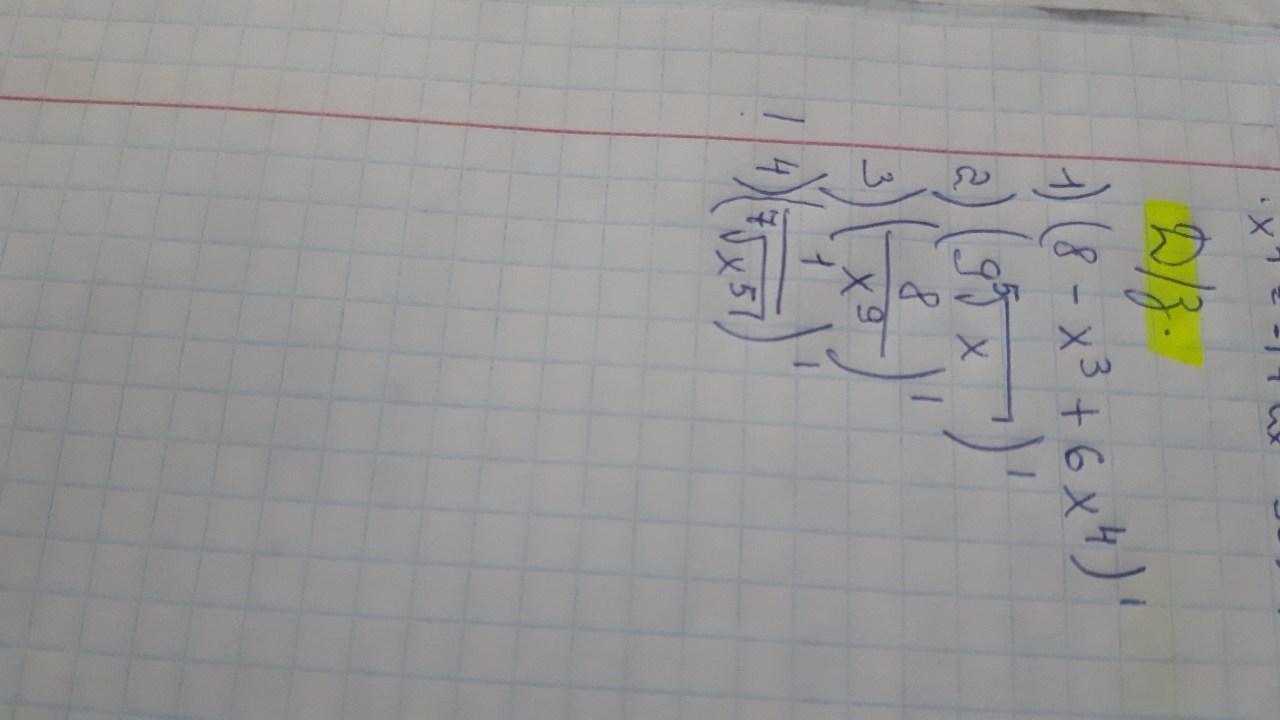 D/З.
1) (8 - x³ + 6x⁴)'
2) (9⁵√x)'
3) (8/x⁹)'
4) (1/⁷√x⁵)'